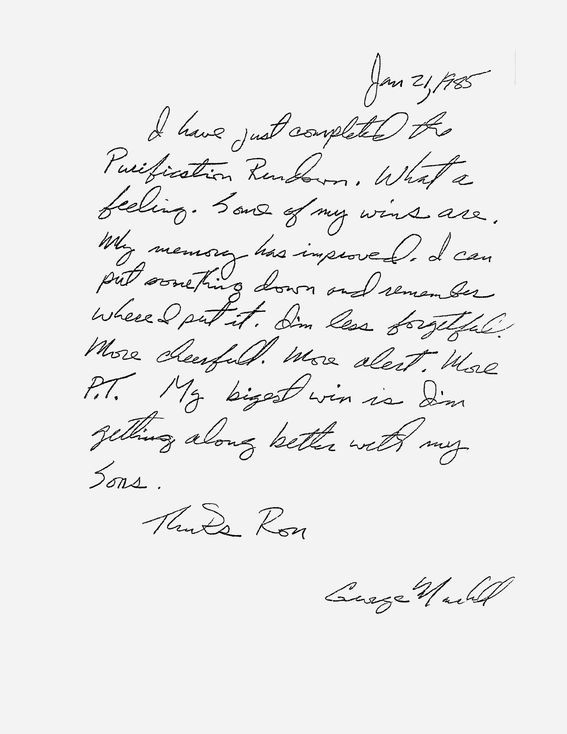 Jan 21, 1985
I have just completed the
Purification Rundown. What a
feeling. Some of my wins are.
My memory has improved. I can
put something down and remember
where I put it. I'm less forgetful.
More cheerfull. More alert. More
P.T. My bigest win is I'm
getting along better with my
Sons.
Thanks Ron
George